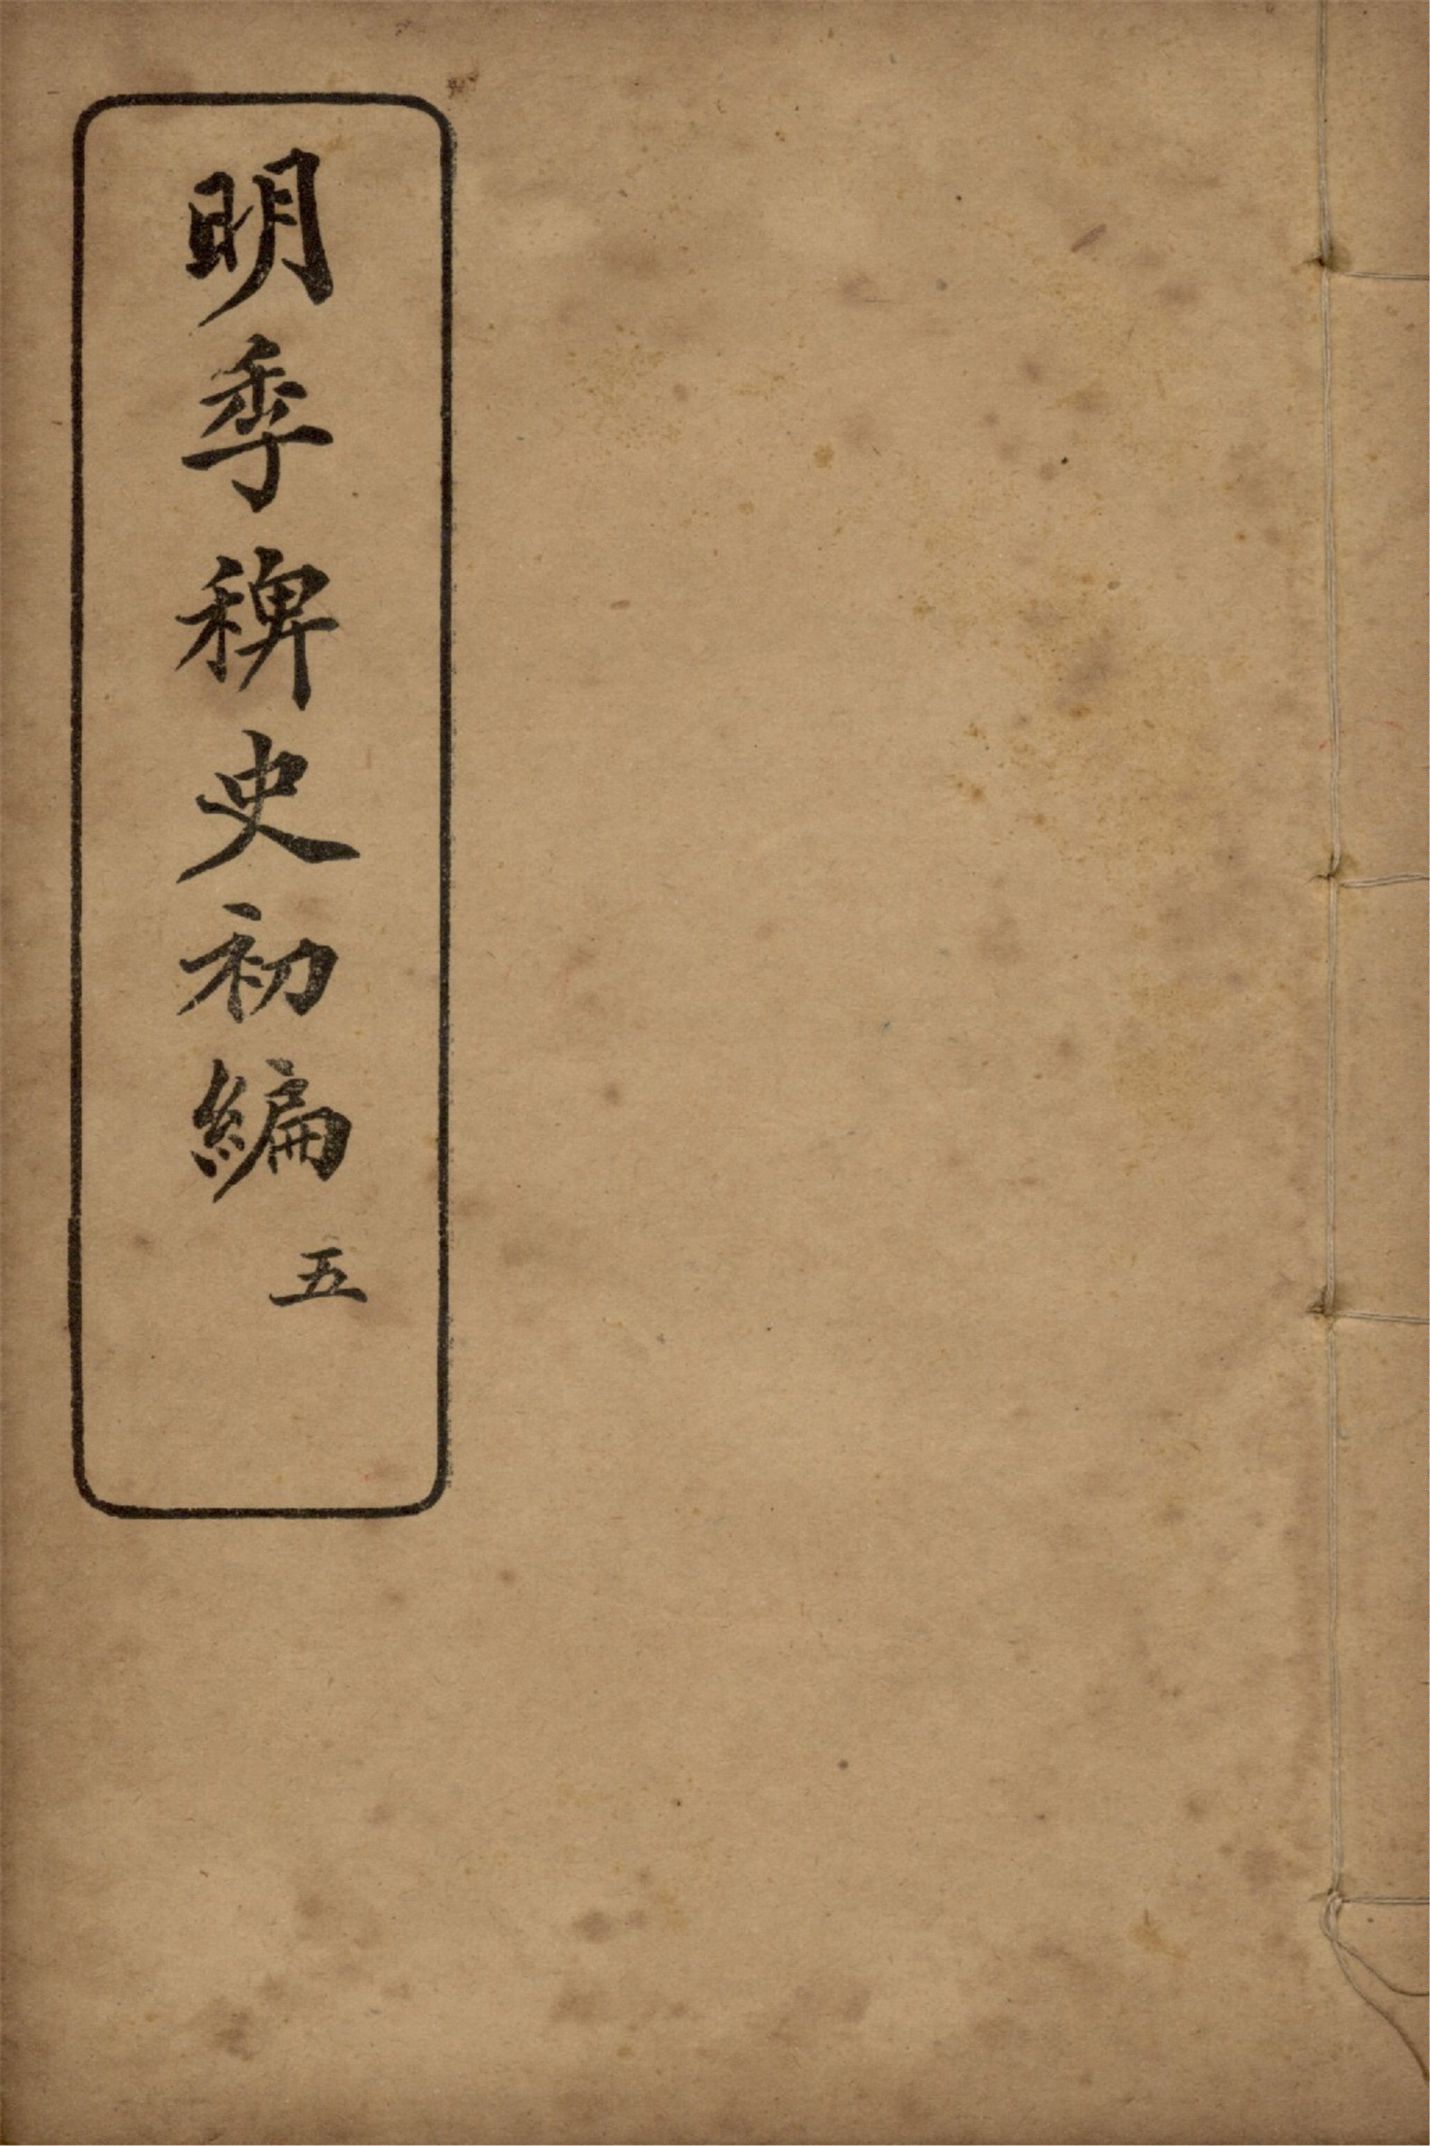 明季稗史初編
五